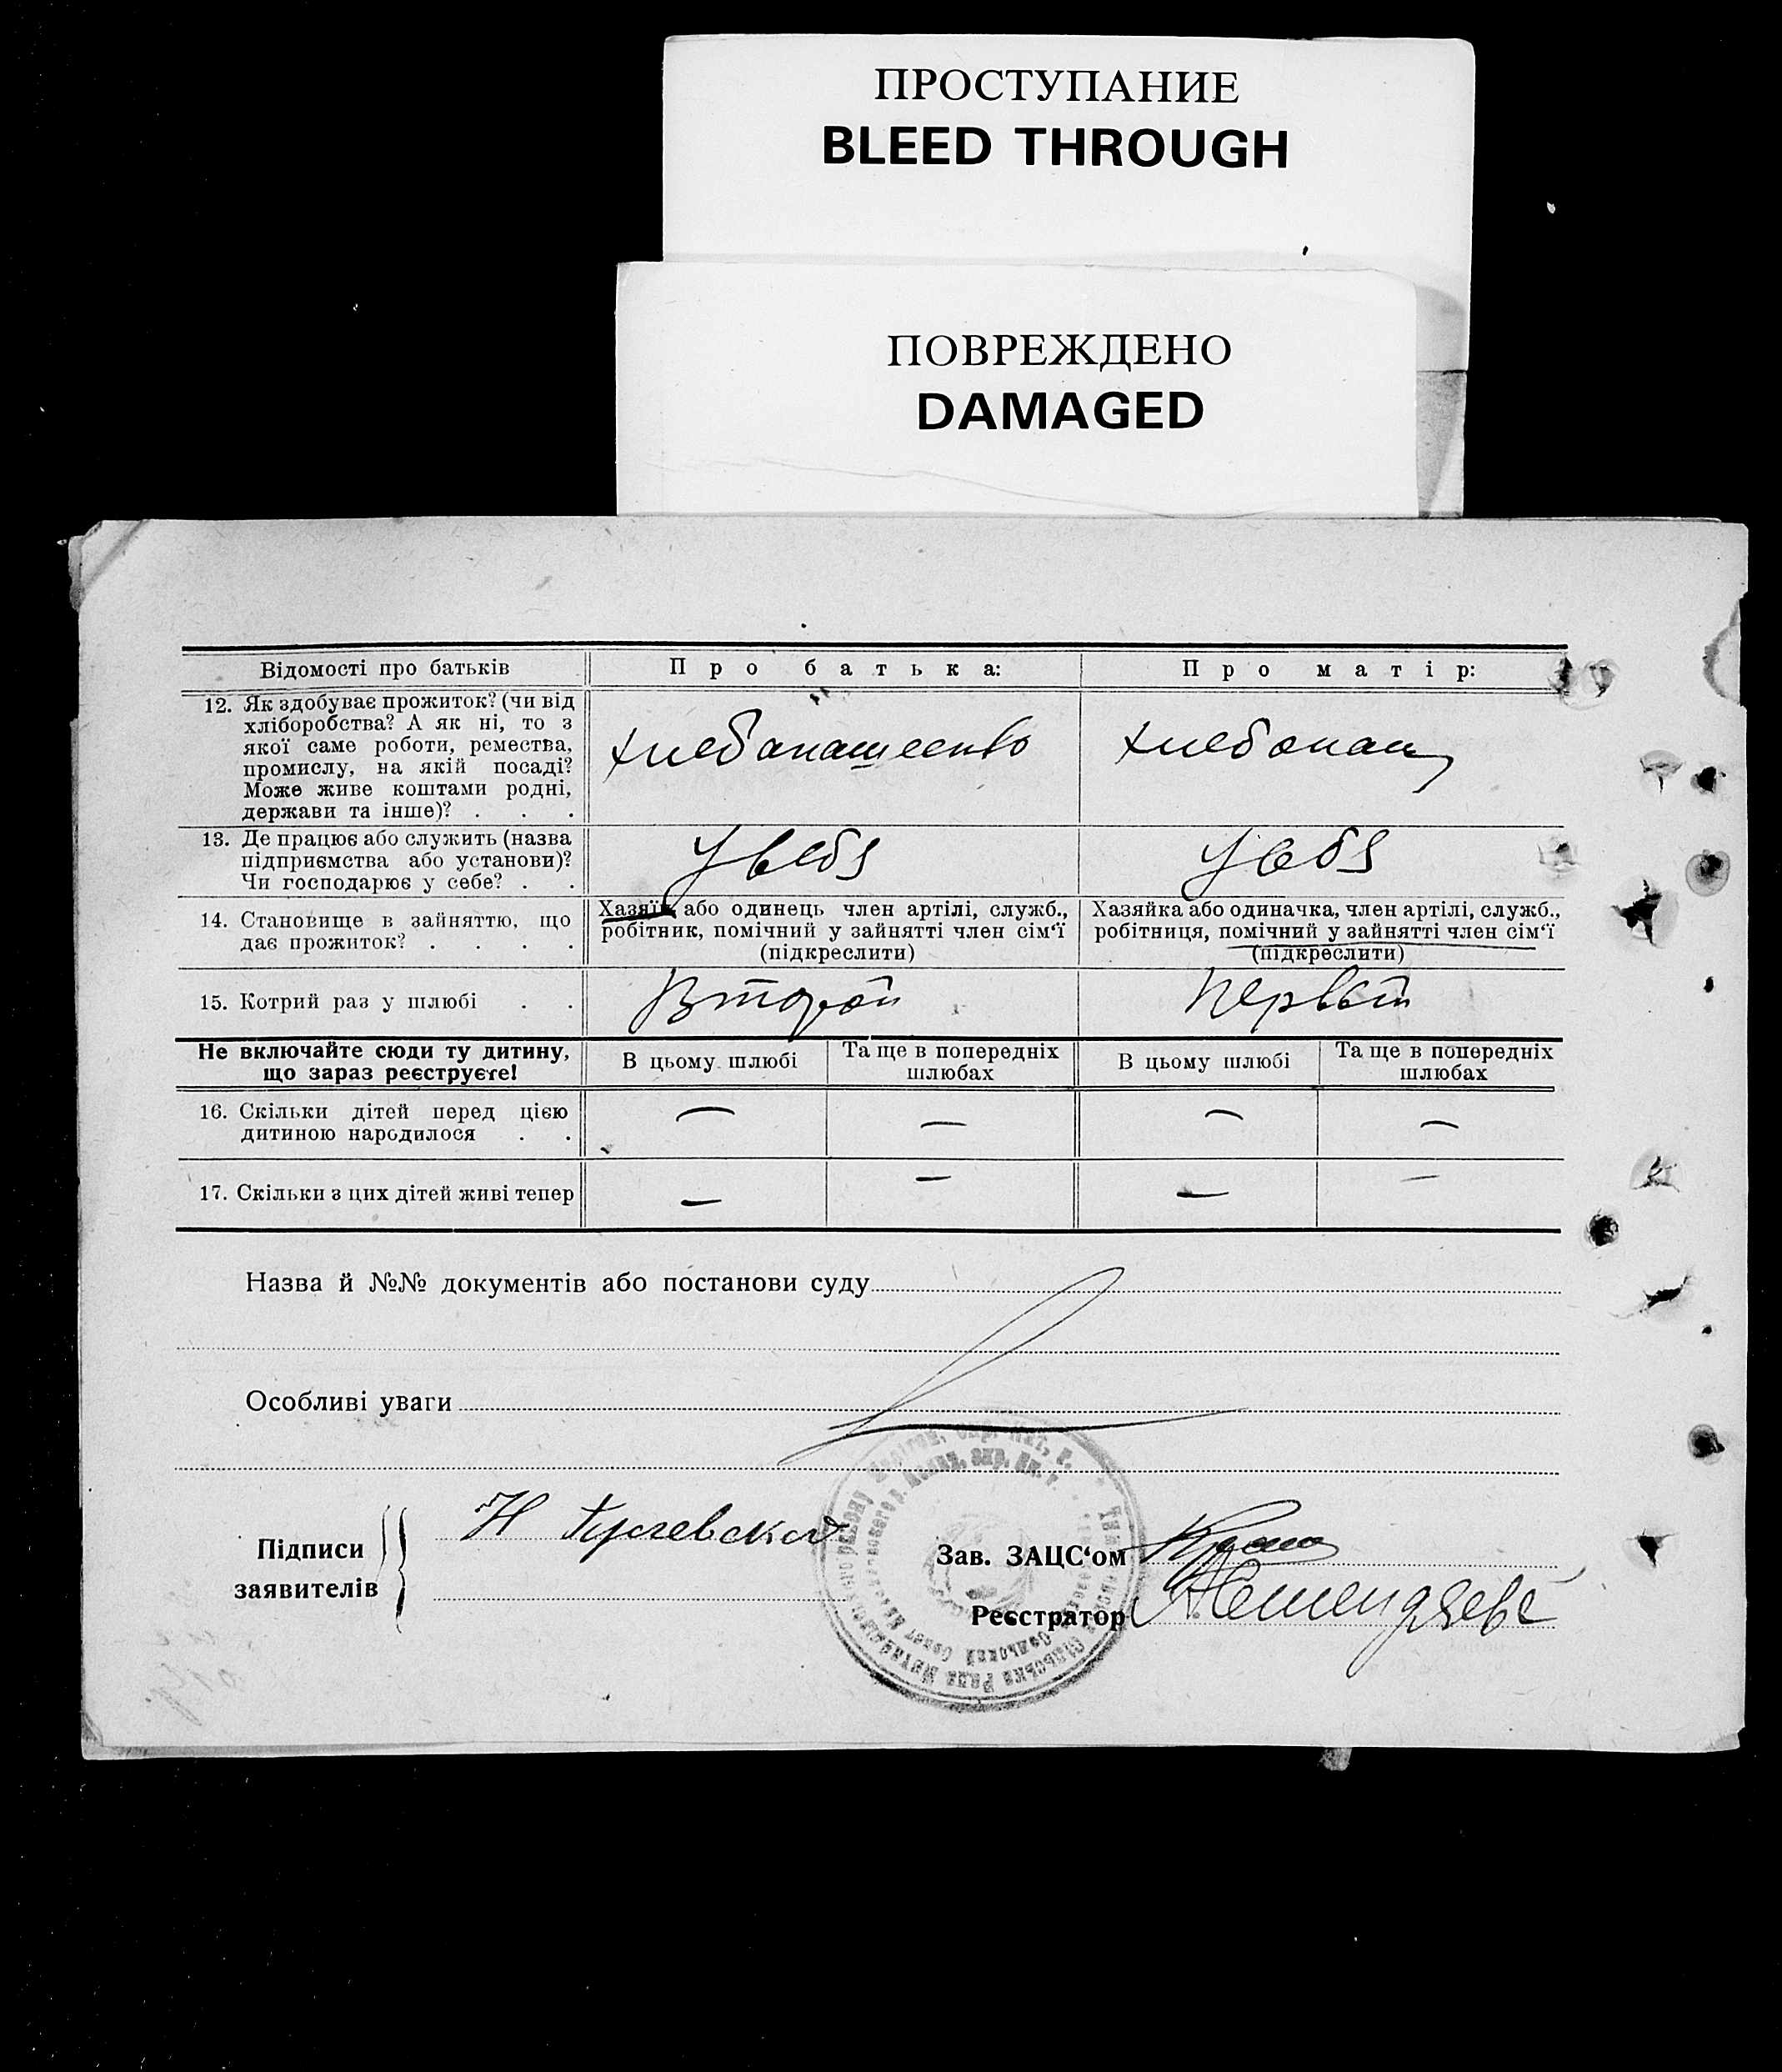 ПРОСТУПАНИЕ
BLEED THROUGH
ПОВРЕЖДЕНО
DAMAGED
Відомості про батьків
Про батька:
Про матір:
12. Як здобуває прожиток? (чи від
хліборобства? А як ні, то з
якої саме роботи, ремества,
промислу, на якій посаді?
Може живе коштами родні,
держави та інше)? . . .
хлебопашество
хлебопаш
13. Де працює або служить (назва
підприємства або установи)?
Чи господарює у себе? . .
У себя
У себя
14. Становище в зайняттю, що
дає прожиток? . . . .
Хазяїн або одинець член артілі, служб.,
робітник, помічний у зайнятті член сім'ї
(підкреслити)
Хазяйка або одиначка, член артілі, служб.,
робітниця, помічний у зайнятті член сім'ї
(підкреслити)
15. Котрий раз у шлюбі . .
Второй
Первый
Не включайте сюди ту дитину,
що зараз реєструєте!
В цьому шлюбі
Та ще в попередніх
шлюбах
В цьому шлюбі
Та ще в попередніх
шлюбах
16. Скільки дітей перед цією
дитиною народилося . .
— — — —
17. Скільки з цих дітей живі тепер
— — — —
Назва й №№ документів або постанови суду
Особливі уваги
Підписи
заявителів
Н
Зав. ЗАЦС'ом
Реєстратор
Сільська Рада